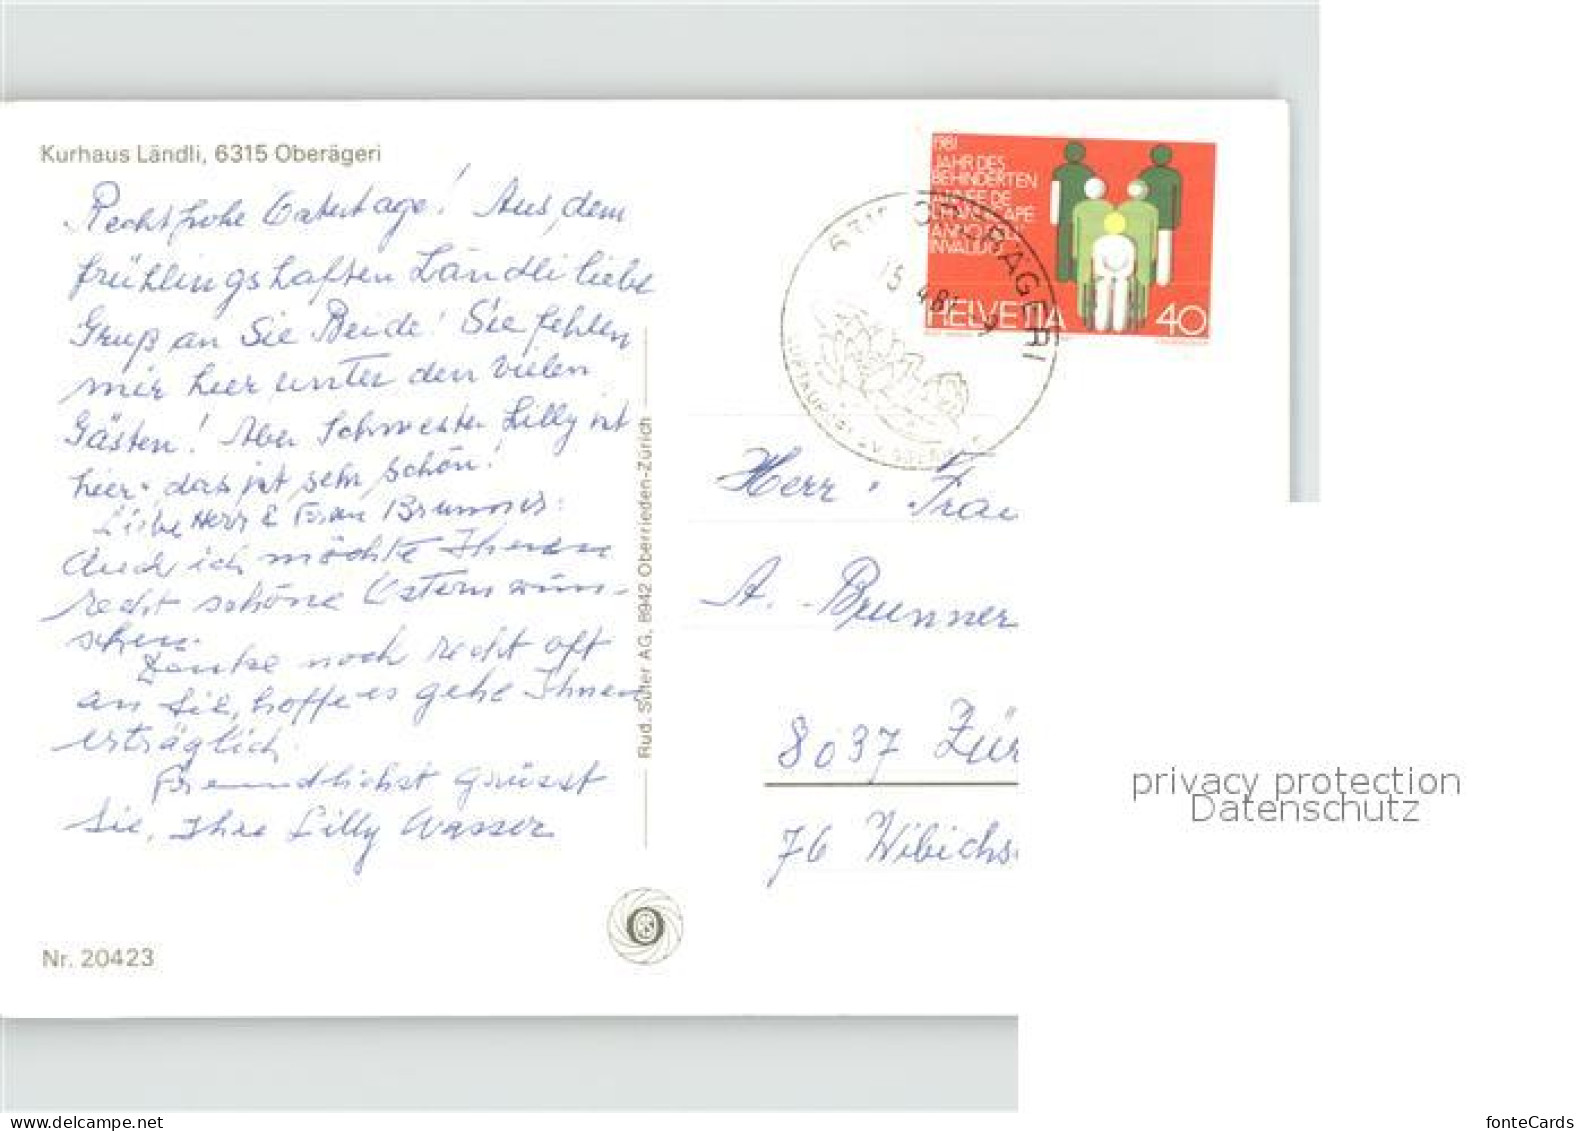 Kurhaus Ländli, 6315 Oberägeri
Recht frohe Ostertage! Aus dem
frühlingshaften Ländli liebe
Gruß an Sie Beide! Sie fehlen
mir hier unter den vielen
Gästen! Aber Schwester Lilly ist
hier. das ist sehr schön!
Liebe Herr & Frau Brunner:
Auch ich möchte Ihnen
recht schöne Ostern wün-
schen.
Denke noch recht oft
an Sie, hoffe es gehe Ihnen
erträglich.
Freundlichst grüsst
Sie, Ihre Lilly Wasser
Nr. 20423
Rud. Suter AG, 8942 Oberrieden-Zürich
6315 OBERÄGERI
15.4.81 -9
1981
JAHR DES
BEHINDERTEN
ANNÉE DE
L'HANDICAPÉ
ANNO DELL'
INVALIDO
HELVETIA 40
Herr & Frau
A. Brunner
8037 Zür
76 Wibichs
privacy protection
Datenschutz
www.delcampe.net
fonteCards